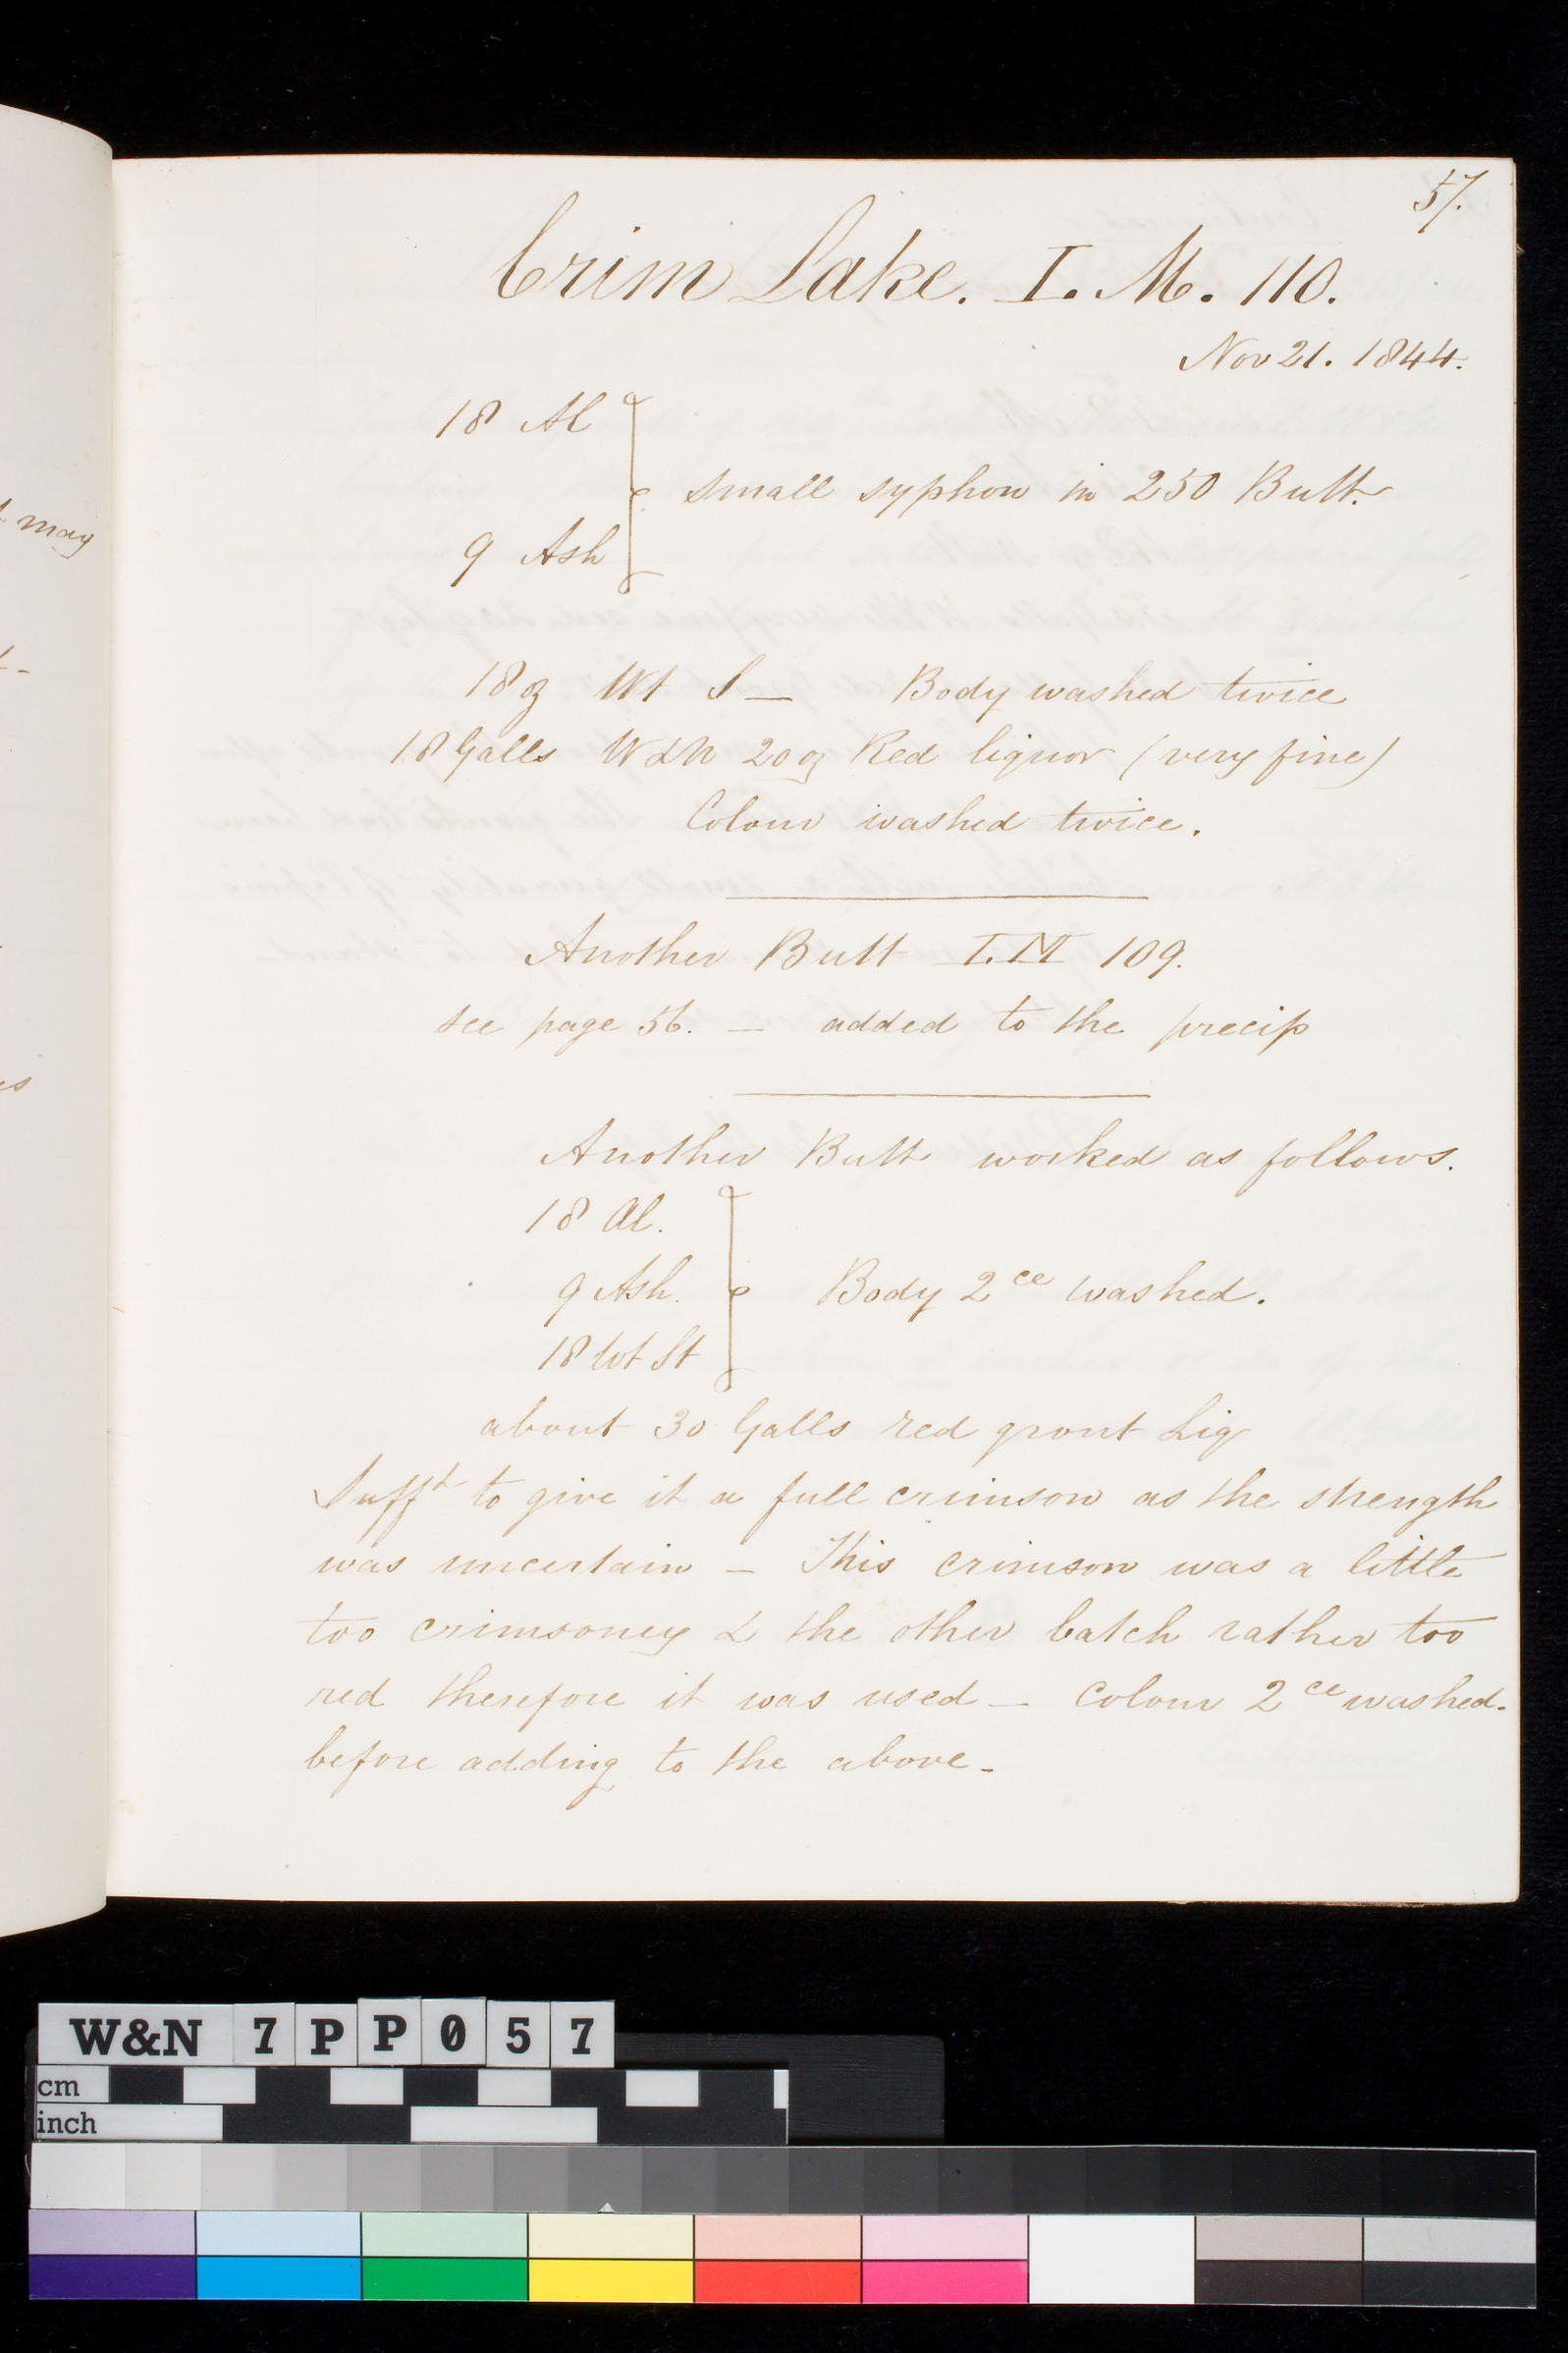 57.
Crim Lake. I. M. 110.
Nov 21. 1844.
18 Al
small syphon in 250 Butt.
9 Ash
18 oz Wt S — Body washed twice
18 Galls W&N 20 oz Red liquor (very fine)
Colour washed twice.
Another Butt I.M 109.
see page 56. — added to the precip
Another Butt worked as follows.
18 Al.
9 Ash. Body 2ce washed.
18 Wt St
about 30 Galls red grout Liq
Sufft to give it a full crimson as the strength
was uncertain — This crimson was a little
too crimsoney & the other batch rather too
red therefore it was used — Colour 2ce washed.
before adding to the above —
may
W&N 7PP057
cm
inch